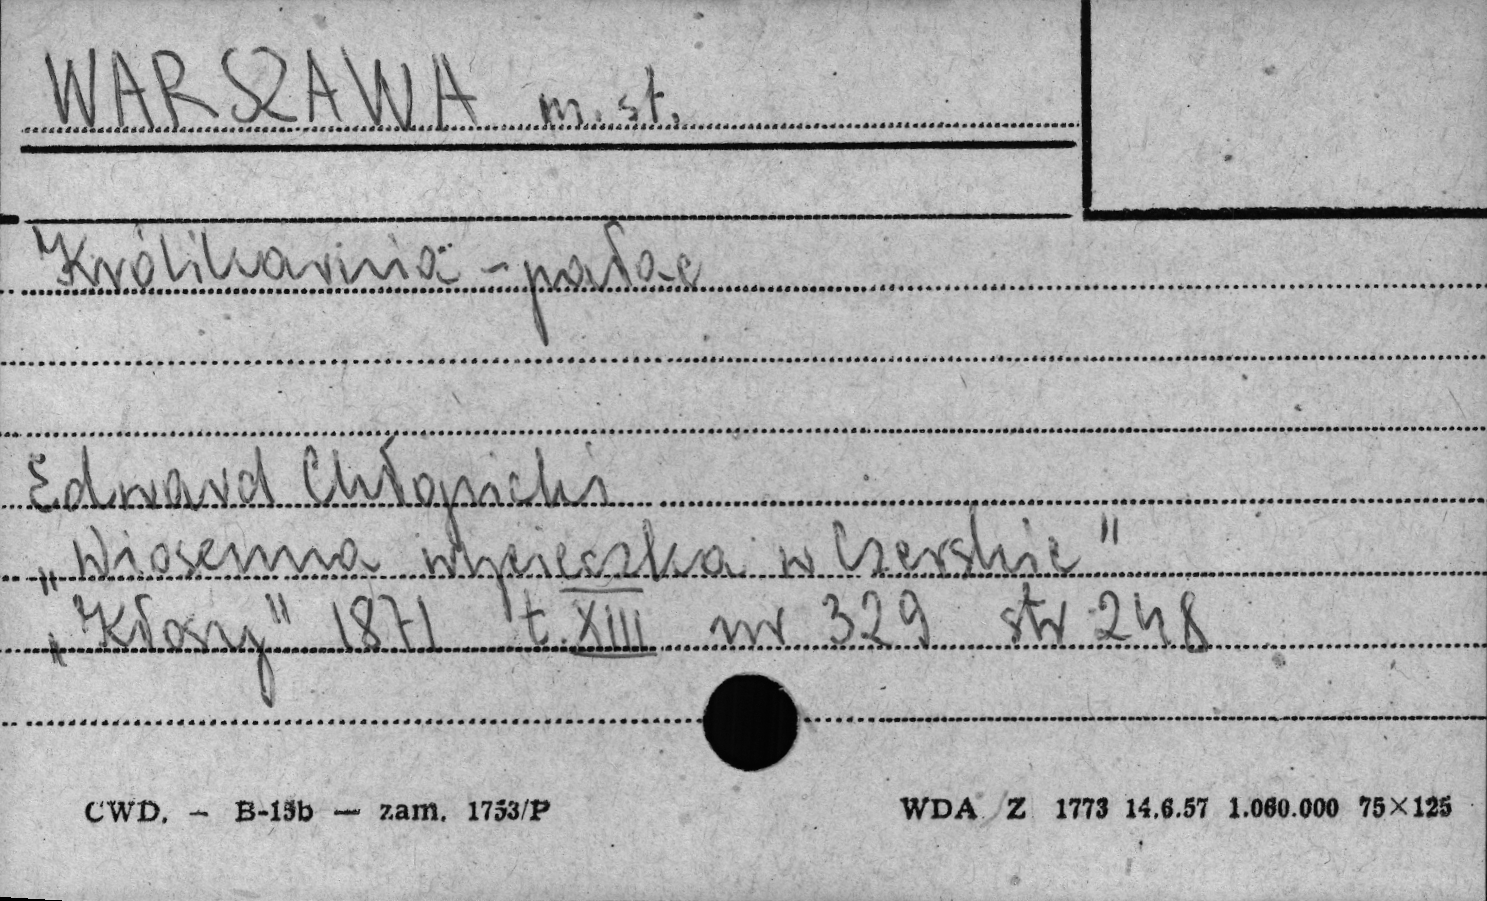 WARSZAWA m. st.
Królikarnia - pałac
Edward Chłopicki
„Wiosenna wycieczka w Czerskie"
„Kłosy" 1871 t. XIII nr 329 str 248
CWD. — B-15b — zam. 1753/P
WDA Z 1773 14.6.57 1.060.000 75×125